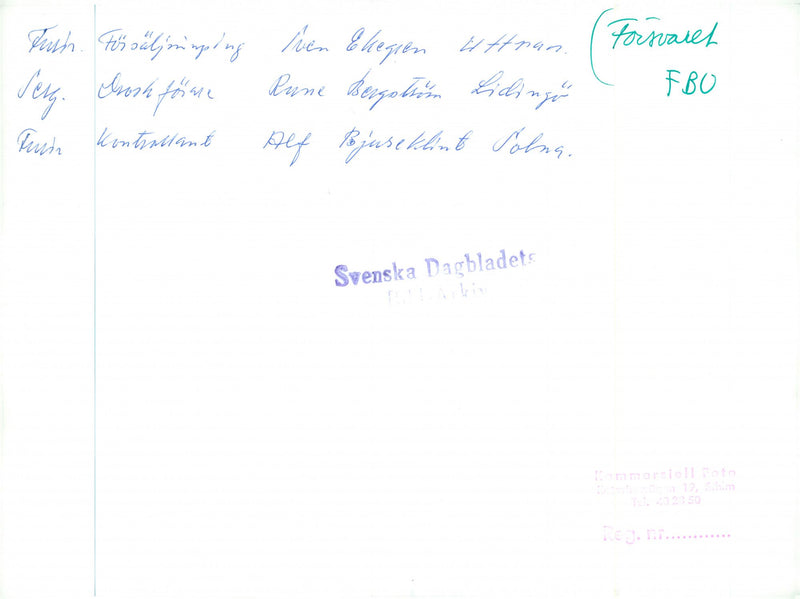 Furir. Försäljningsing Sven Ekegren Uttran.
Serg. Droskförare Rune Bergström Lidingö
Furir Kontrollant Alf Bjuseklint Solna.
(Försvaret
FBU
Svenska Dagbladets
Bild-Arkiv
Kommersiell Foto
19, Sthlm
Tel. 402350
Reg. nr............